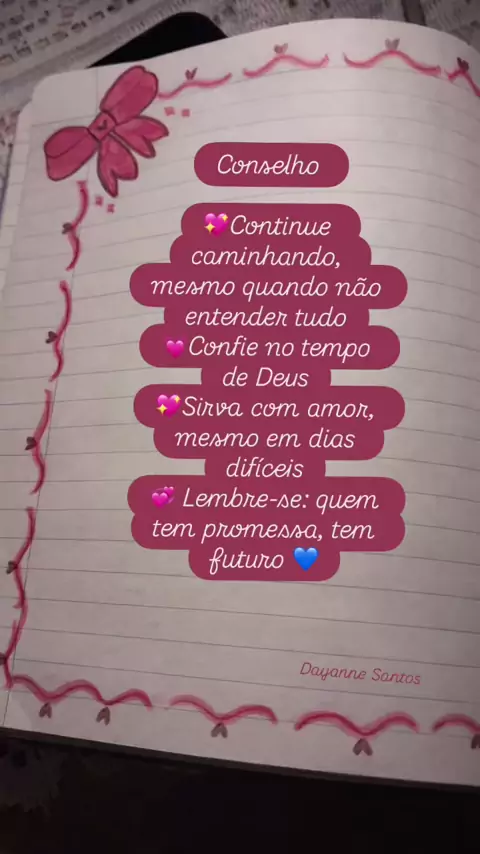 Conselho
💖Continue
caminhando,
mesmo quando não
entender tudo
💗Confie no tempo
de Deus
💖Sirva com amor,
mesmo em dias
difíceis
💞 Lembre-se: quem
tem promessa, tem
futuro 💙
Dayanne Santos